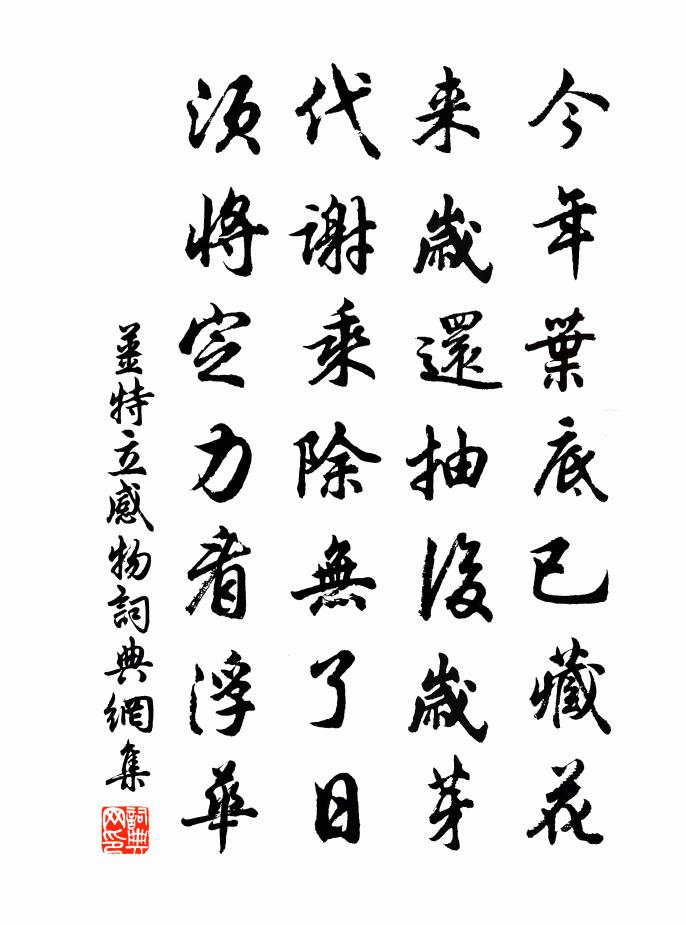 今年葉底已藏花
来歲還抽後歲芽
代謝乘除無了日
須將定力看浮華
姜特立感物詞典網集
詞典网印